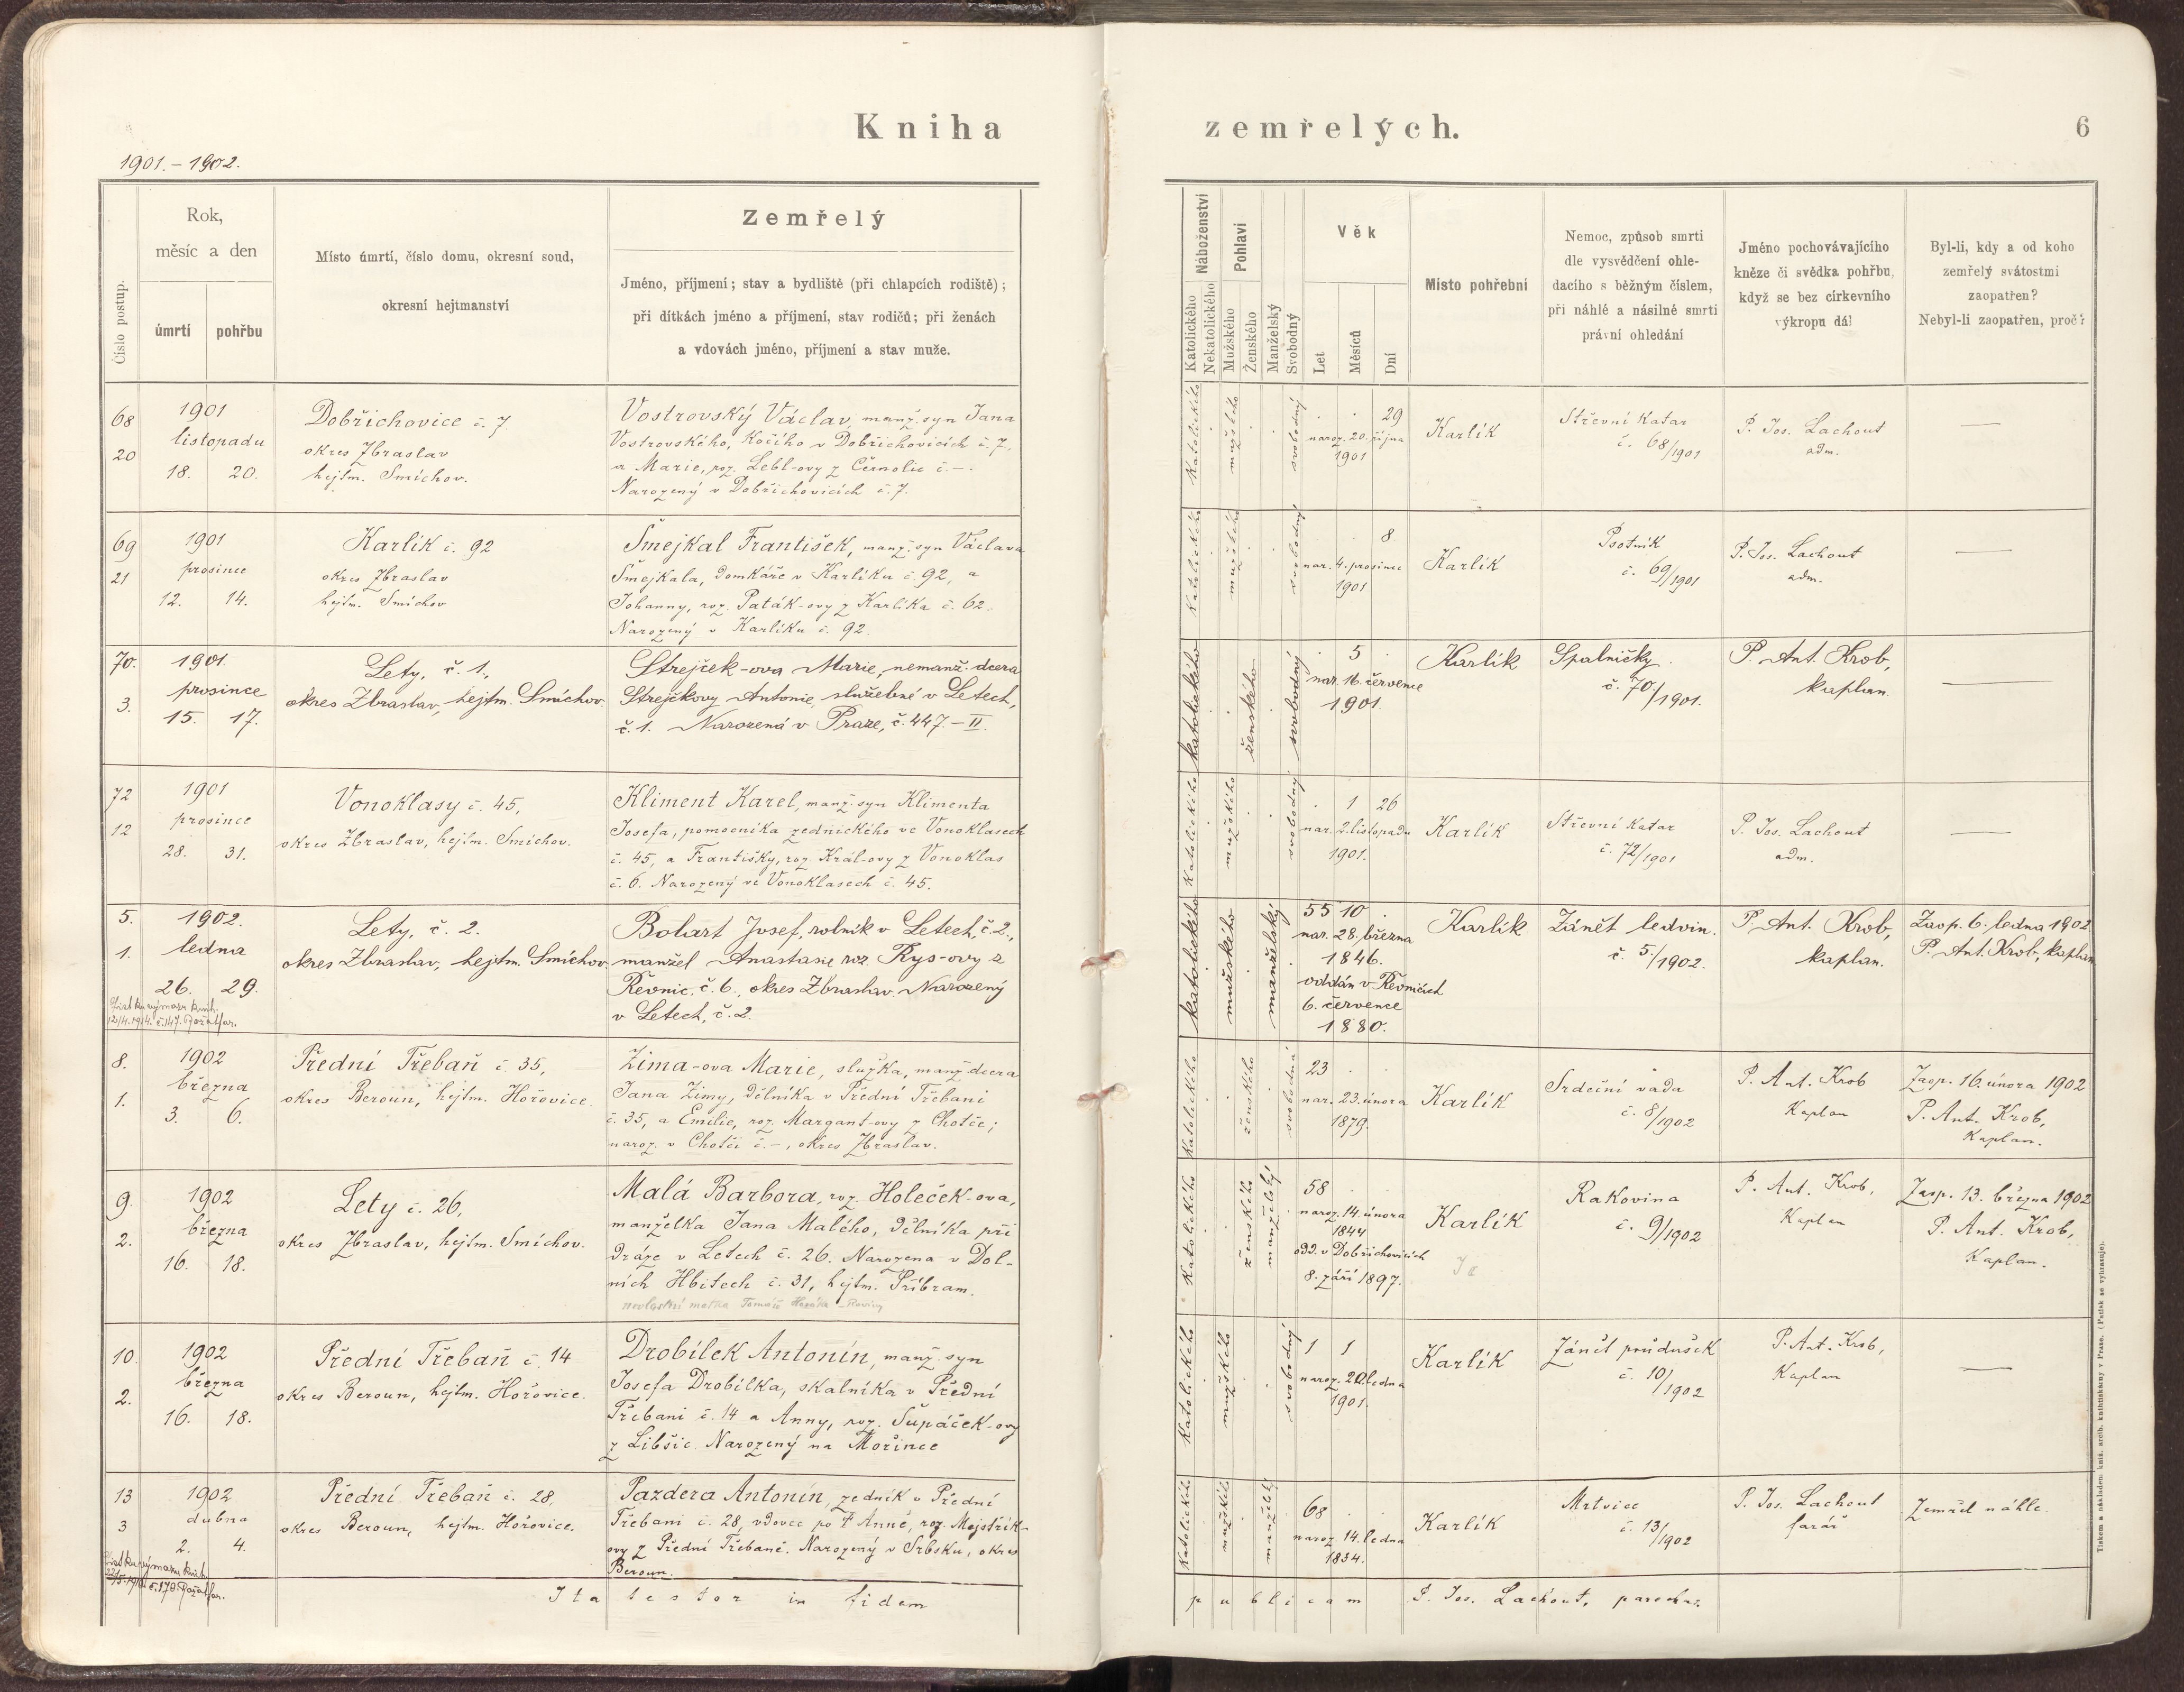 Kniha
1901.–1902.
Číslo postup.
Rok,
měsíc a den
úmrtí
pohřbu
Místo úmrtí, číslo domu, okresní soud,
okresní hejtmanství
Zemřelý
Jméno, příjmení; stav a bydliště (při chlapcích rodiště);
při dítkách jméno a příjmení, stav rodičů; při ženách
a vdovách jméno, příjmení a stav muže.
68
20
1901
listopadu
18. 20.
Dobřichovice č. 7.
okres Zbraslav
hejtm. Smíchov.
Vostrovský Václav, manž. syn Jana
Vostrovského, kočího v Dobřichovicích č. 7,
a Marie, roz. Lebl-ovy z Černolic č. –.
Narozený v Dobřichovicích č. 7.
69
21
1901
prosince
12. 14.
Karlík č. 92
okres Zbraslav
hejtm. Smíchov
Šmejkal František, manž. syn Václava
Šmejkala, domkáře v Karlíku č. 92, a
Johanny, roz. Paták-ovy z Karlíka č. 62.
Narozený v Karlíku č. 92.
70.
3.
1901.
prosince
15. 17.
Lety, č. 1.,
okres Zbraslav, hejtm. Smíchov.
Strejček-ova Marie, nemanž. dcera
Strejčkovy Antonie, služebné v Letech,
č. 1. Narozená v Praze, č. 447.–II.
72
12
1901
prosince
28. 31.
Vonoklasy č. 45,
okres Zbraslav, hejtm. Smíchov.
Kliment Karel, manž. syn Klimenta
Josefa, pomocníka zednického ve Vonoklasech
č. 45, a Františky, roz. Král-ovy z Vonoklas
č. 6. Narozený ve Vonoklasech č. 45.
5.
1.
1902.
ledna
26. 29.
Lety, č. 2.
okres Zbraslav, hejtm. Smíchov.
Bolart Josef, rolník v Letech, č. 2.,
manžel Anastasie roz. Rys-ovy z
Řevnic, č. 6., okres Zbraslav. Narozený
v Letech, č. 2.
8.
1.
1902
března
3. 6.
Přední Třebaň č. 35,
okres Beroun, hejtm. Hořovice.
Zima-ova Marie, služka, manž. dcera
Jana Zimy, dělníka v Přední Třebani
č. 35, a Emilie, roz. Margant-ovy z Chotče;
naroz. v Chotči č. –, okres Zbraslav.
9.
2.
1902
března
16. 18.
Lety č. 26,
okres Zbraslav, hejtm. Smíchov.
Malá Barbora, roz. Holeček-ova,
manželka Jana Malého, dělníka při
dráze v Letech č. 26. Narozena v Dol-
ních Hbitech č. 31, hejtm. Příbram.
nevlastní matka Tomáše
10.
2.
1902
března
16. 18.
Přední Třebaň č. 14
okres Beroun, hejtm. Hořovice.
Drobílek Antonín, manž. syn
Josefa Drobílka, skalníka v Přední
Třebani č. 14 a Anny, roz. Šupáček-ovy
z Libšic. Narozený na Mořince
13
3
1902
dubna
2. 4.
Přední Třebaň č. 28,
okres Beroun, hejtm. Hořovice.
Pazdera Antonín, zedník v Přední
Třebani č. 28, vdovec po † Anně, roz. Mejstřík-
ovy z Přední Třebaně. Narozený v Srbsku, okres
Beroun.
Ita testor in fidem
zemřelých.
6
Náboženství
Katolického
Nekatolického
Pohlaví
Mužského
Ženského
Manželský
Svobodný
Věk
Let
Měsíců
Dní
Místo pohřební
Nemoc, způsob smrti
dle vysvědčení ohle-
dacího s běžným číslem,
při náhlé a násilné smrti
právní ohledání
Jméno pochovávajícího
kněze či svědka pohřbu,
když se bez církevního
výkropu dál
Byl-li, kdy a od koho
zemřelý svátostmi
zaopatřen?
Nebyl-li zaopatřen, proč?
katolického
mužského
svobodný
29
naroz. 20. října
1901
Karlík
Střevní katar
č. 68/1901
P. Jos. Lachout
adm.
—
katolického
mužského
svobodný
8
nar. 4. prosince
1901
Karlík
Psotník
č. 69/1901
P. Jos. Lachout
adm.
—
katolického
ženského
svobodný
5
nar. 16. července
1901.
Karlík
Spalničky.
č. 70/1901.
P. Ant. Krob,
kaplan.
—
katolického
mužského
svobodný
1 26
nar. 2. listopadu
1901.
Karlík
Střevní katar
č. 72/1901
P. Jos. Lachout
adm.
—
katolického
mužského
manželský
55 10
nar. 28. března
1846.
oddán v Řevnicích
6. července
1880.
Karlík
Zánět ledvin.
č. 5/1902.
P. Ant. Krob,
kaplan.
Zaop. 6. ledna 1902
P. Ant. Krob, kaplan
katolického
ženského
svobodná
23
nar. 23. února
1879.
Karlík
Srdeční vada
č. 8/1902
P. Ant. Krob
kaplan
Zaop. 16. února 1902
P. Ant. Krob,
kaplan.
katolického
ženského
manželský
58
naroz. 14. února
1844
odd. v Dobřichovicích
8. září 1897.
Karlík
Rakovina
č. 9/1902
P. Ant. Krob,
kaplan
Zaop. 13. března 1902
P. Ant. Krob,
kaplan.
katolického
mužského
svobodný
1 1
naroz. 20. ledna
1901.
Karlík
Zánět průdušek
č. 10/1902
P. Ant. Krob,
kaplan
—
katolického
mužského
manželský
68
naroz. 14. ledna
1834.
Karlík
Mrtvice
č. 13/1902
P. Jos. Lachout
farář
Zemřel náhle.
publicam P. Jos. Lachout, parochus.
Tiskem a nákladem kníž. arcib. knihtiskárny v Praze. (Patisk se vyhrazuje).